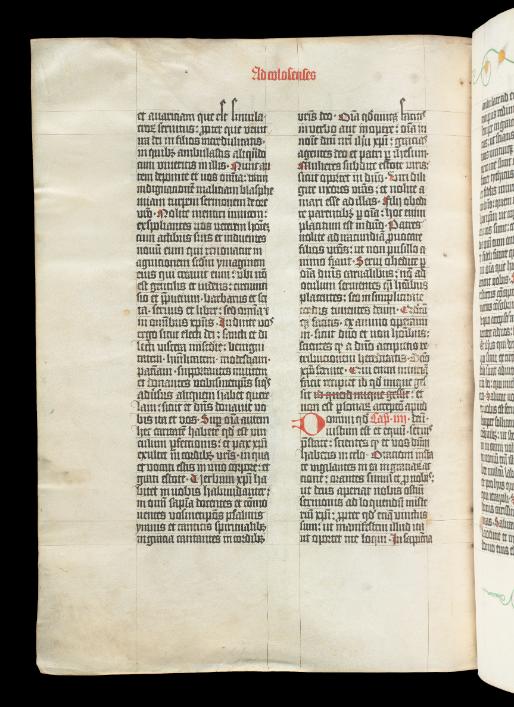 Ad colosenses
et avariciam que est simula
croꝝ servitus : ꝓpter que venit
ira dei in filios incredulitatis ·
in quibꝫ ambulastis aliqñdo
cum viveretis in illis · Nunc au
tem deponite et vos omnia : iram
indignationem maliciam blasphe
miam turpem sermonem de ore
vr̃o · Nolite mentiri invicem :
exspoliantes vos veterem homĩeꝫ
cum actibus suis et induentes
novũ eum qui renovatur in
agnicionem scđm ymaginem
eius qui creavit eum : ubi nõ
est gentilis et iudeus : circumci
sio et p̃puciũ · barbarus et sci
ta · servus et liber : sed omnia ⁊
in omnibus xp̃us · Induite vos
ergo sicut electi dei : sancti et di
lecti viscera misc̃die : benigni
tatem · humilitatem · modestiam ·
pacienciam : supportantes invicem
et donantes vobismetip̃is siq̃s
adversus aliquem habet quere
lam : sicut et dñs donavit vo
bis ita et vos · Sup oĩa autem
hec caritatẽ habete qđ est vin
culum ꝑfectionis : et pax xp̃i
exultet in cordibꝫ vr̃is : in qua
et vocati estis in uno corpore : et
grati estote · Verbum xp̃i ha
bitet in vobis habundanter :
in omĩ sapĩa docentes et cõmo
nentes vosmetip̃os psalmis
ymnis et canticis spiritualibꝫ
in gracia cantantes in cordibꝫ
vestris deo · Om̃e qđcumqꝫ facitis
in verbo aut in opere : oĩa in
noĩe dñi nr̃i ihũ xp̃i : gracias
agentes deo et patri ꝑ ip̃sum ·
Mulieres subdite estote viris :
sicut oportet in dño · Viri dili
gite uxores vr̃as : et nolite a
mari esse ad illas · Filij obedi
te parentibꝫ ꝑ oĩa : hoc enim
placitum est in dño · Patres
nolite ad iracundiã ꝓvocare
filios vr̃os : ut non pusillo a
nimo fiant · Servi obedite ꝑ
oĩa dñis carnalibus : nõ ad
oculum servientes q̃si hoĩibus
placentes : sed in simplicitate
cordis timentes deum · Qđcũ
qꝫ facitis · ex animo operami
ni · sicut dño et non hoĩbus :
scientes qꝫ a dño accipietis re
tribucionem hereditatis · Dño
xp̃o servite · Qui enim iniuriã
facit recipiet id qđ inique ges
sit id quod inique gessit : et
non est ꝑsonaꝝ accepcio apud
Domini qđ Cap · iiij · deũ ·
iustum est et equũ · servis
p̃state : scientes qꝫ et vos dñm
habetis in celo · Oracioni insta
te vigilantes in ea in graciaꝝ ac
tione : orantes simul et ꝓ nobis :
ut deus aperiat nobis ostiũ
sermonis ad loquendũ miste
riũ xp̃i : ꝓpter qđ eciã vinctus
sum : ut manifestem illud ita
ut oportet me loqui · In sapiẽtia